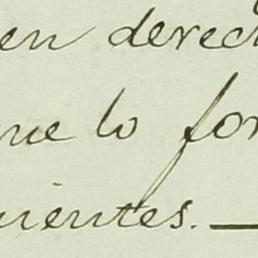 en derec
ue lo for
uientes.—